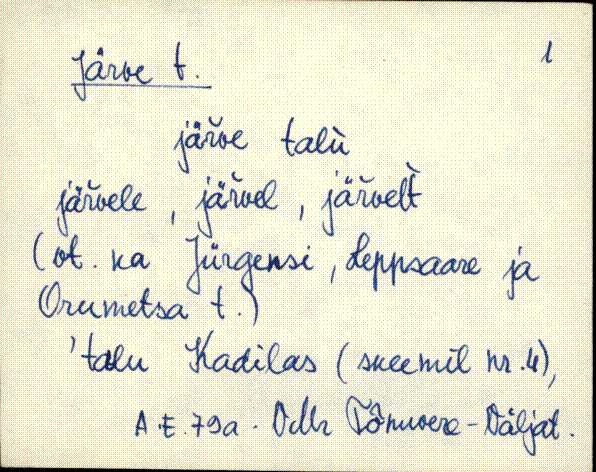 Järve t. 1
järve talù
järvele, järvel, järvelt
(vt. ka Jürgensi, Leppsaare ja
Orumetsa t.)
'talu Kadilas (skeemil nr. 4),
A. E. 79a. VMr Tõnuvere-Väljal.